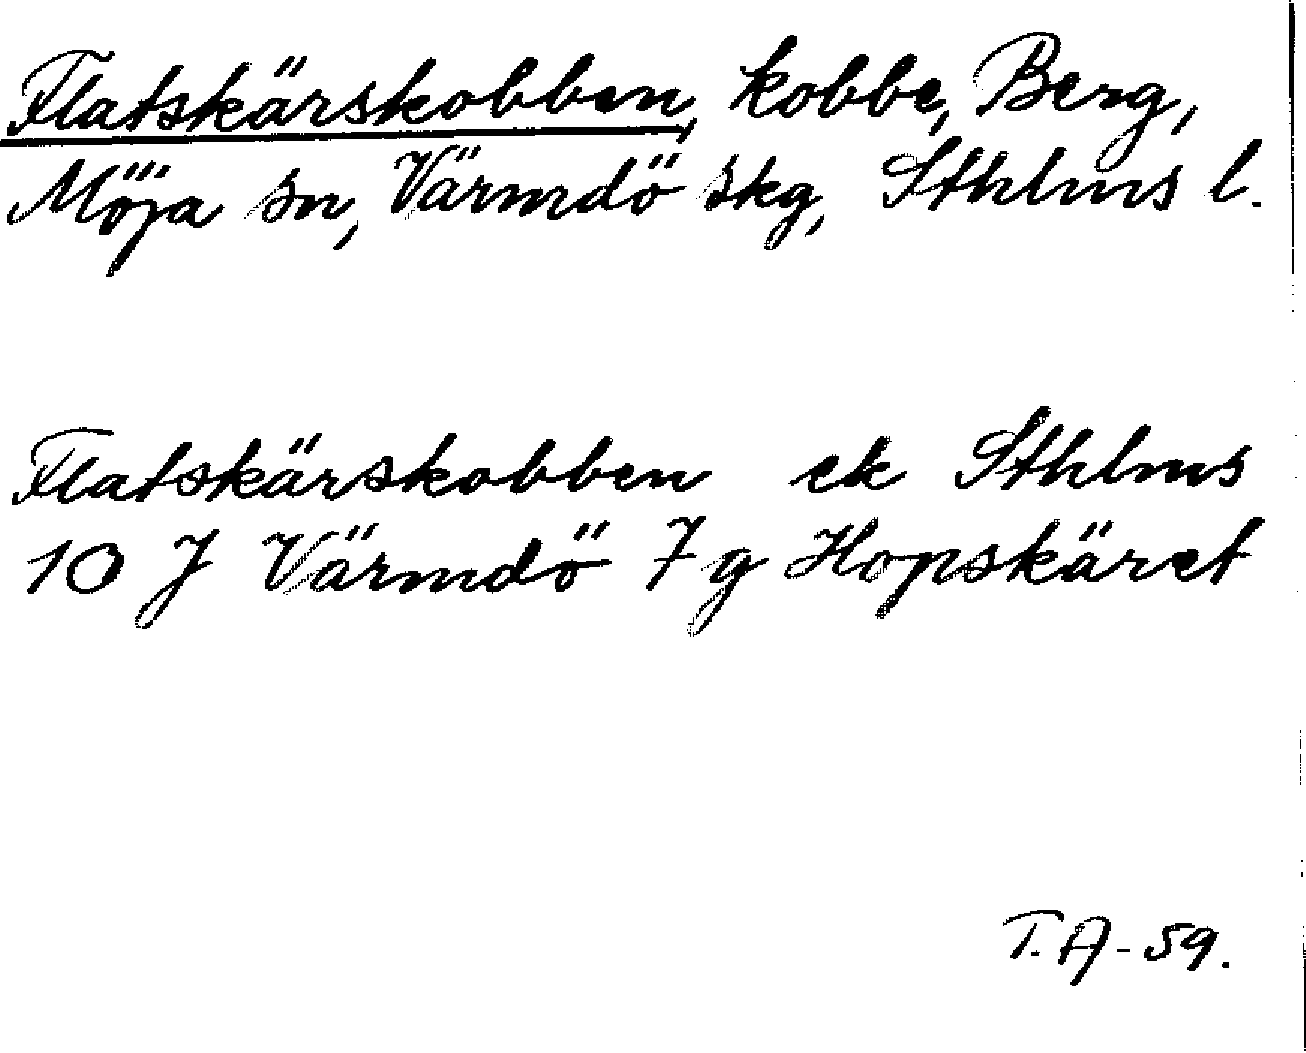 Flatskärskobben, kobbe, Berg,
Möja sn, Värmdö skg, Sthlms l.
Flatskärskobben ek Sthlms
10 J Värmdö 7 g Hopskäret
T.A-59.